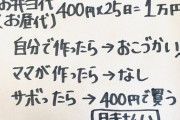 お弁当代
(お昼代) 400円×25日=1万円
自分で作ったら→おこづかい
ママが作ったら→なし
サボったら→400円で買う